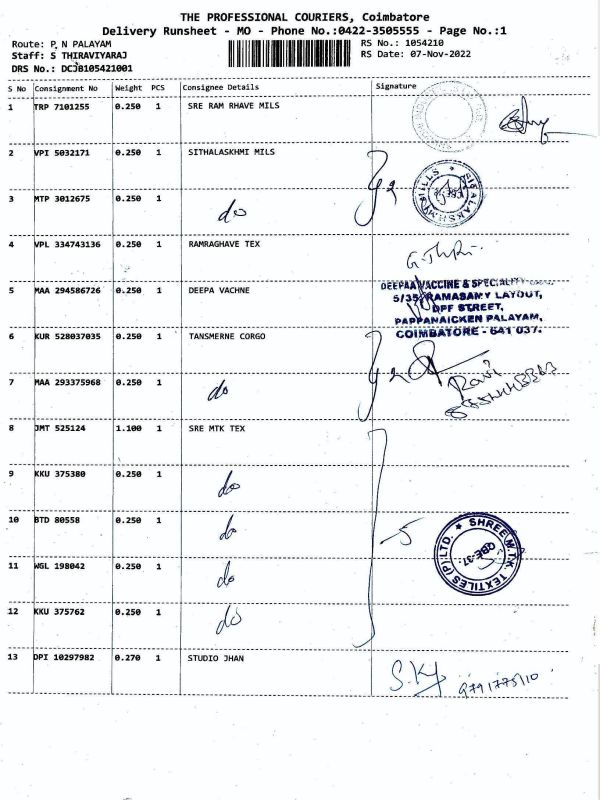 THE PROFESSIONAL COURIERS, Coimbatore
Delivery Runsheet - MO - Phone No.:0422-3505555 - Page No.:1
Route: P, N PALAYAM
Staff: S THIRAVIYARAJ
DRS No.: DCJB105421001
RS No.: 1054210
RS Date: 07-Nov-2022
S No Consignment No Weight PCS Consignee Details Signature
1 TRP 7101255 0.250 1 SRE RAM RHAVE MILS
2 VPI 5032171 0.250 1 SITHALASKHMI MILS
3 MTP 3012675 0.250 1 do
4 VPL 334743136 0.250 1 RAMRAGHAVE TEX
5 MAA 294586726 0.250 1 DEEPA VACHNE
DEEPAA VACCINE & SPECIALITY
5/35, RAMASAMY LAYOUT,
DPF STREET,
PAPPANAICKEN PALAYAM,
COIMBATORE - 641 037.
6 KUR 528037035 0.250 1 TANSMERNE CORGO
7 MAA 293375968 0.250 1 do
Ravi
8 JMT 525124 1.100 1 SRE MTK TEX
9 KKU 375380 0.250 1 do
10 BTD 80558 0.250 1 do
5
SHREE M.T.K. TEXTILES (P) LTD.
CBE-37.
11 WGL 198042 0.250 1 do
12 KKU 375762 0.250 1 do
13 DPI 10297982 0.270 1 STUDIO JHAN